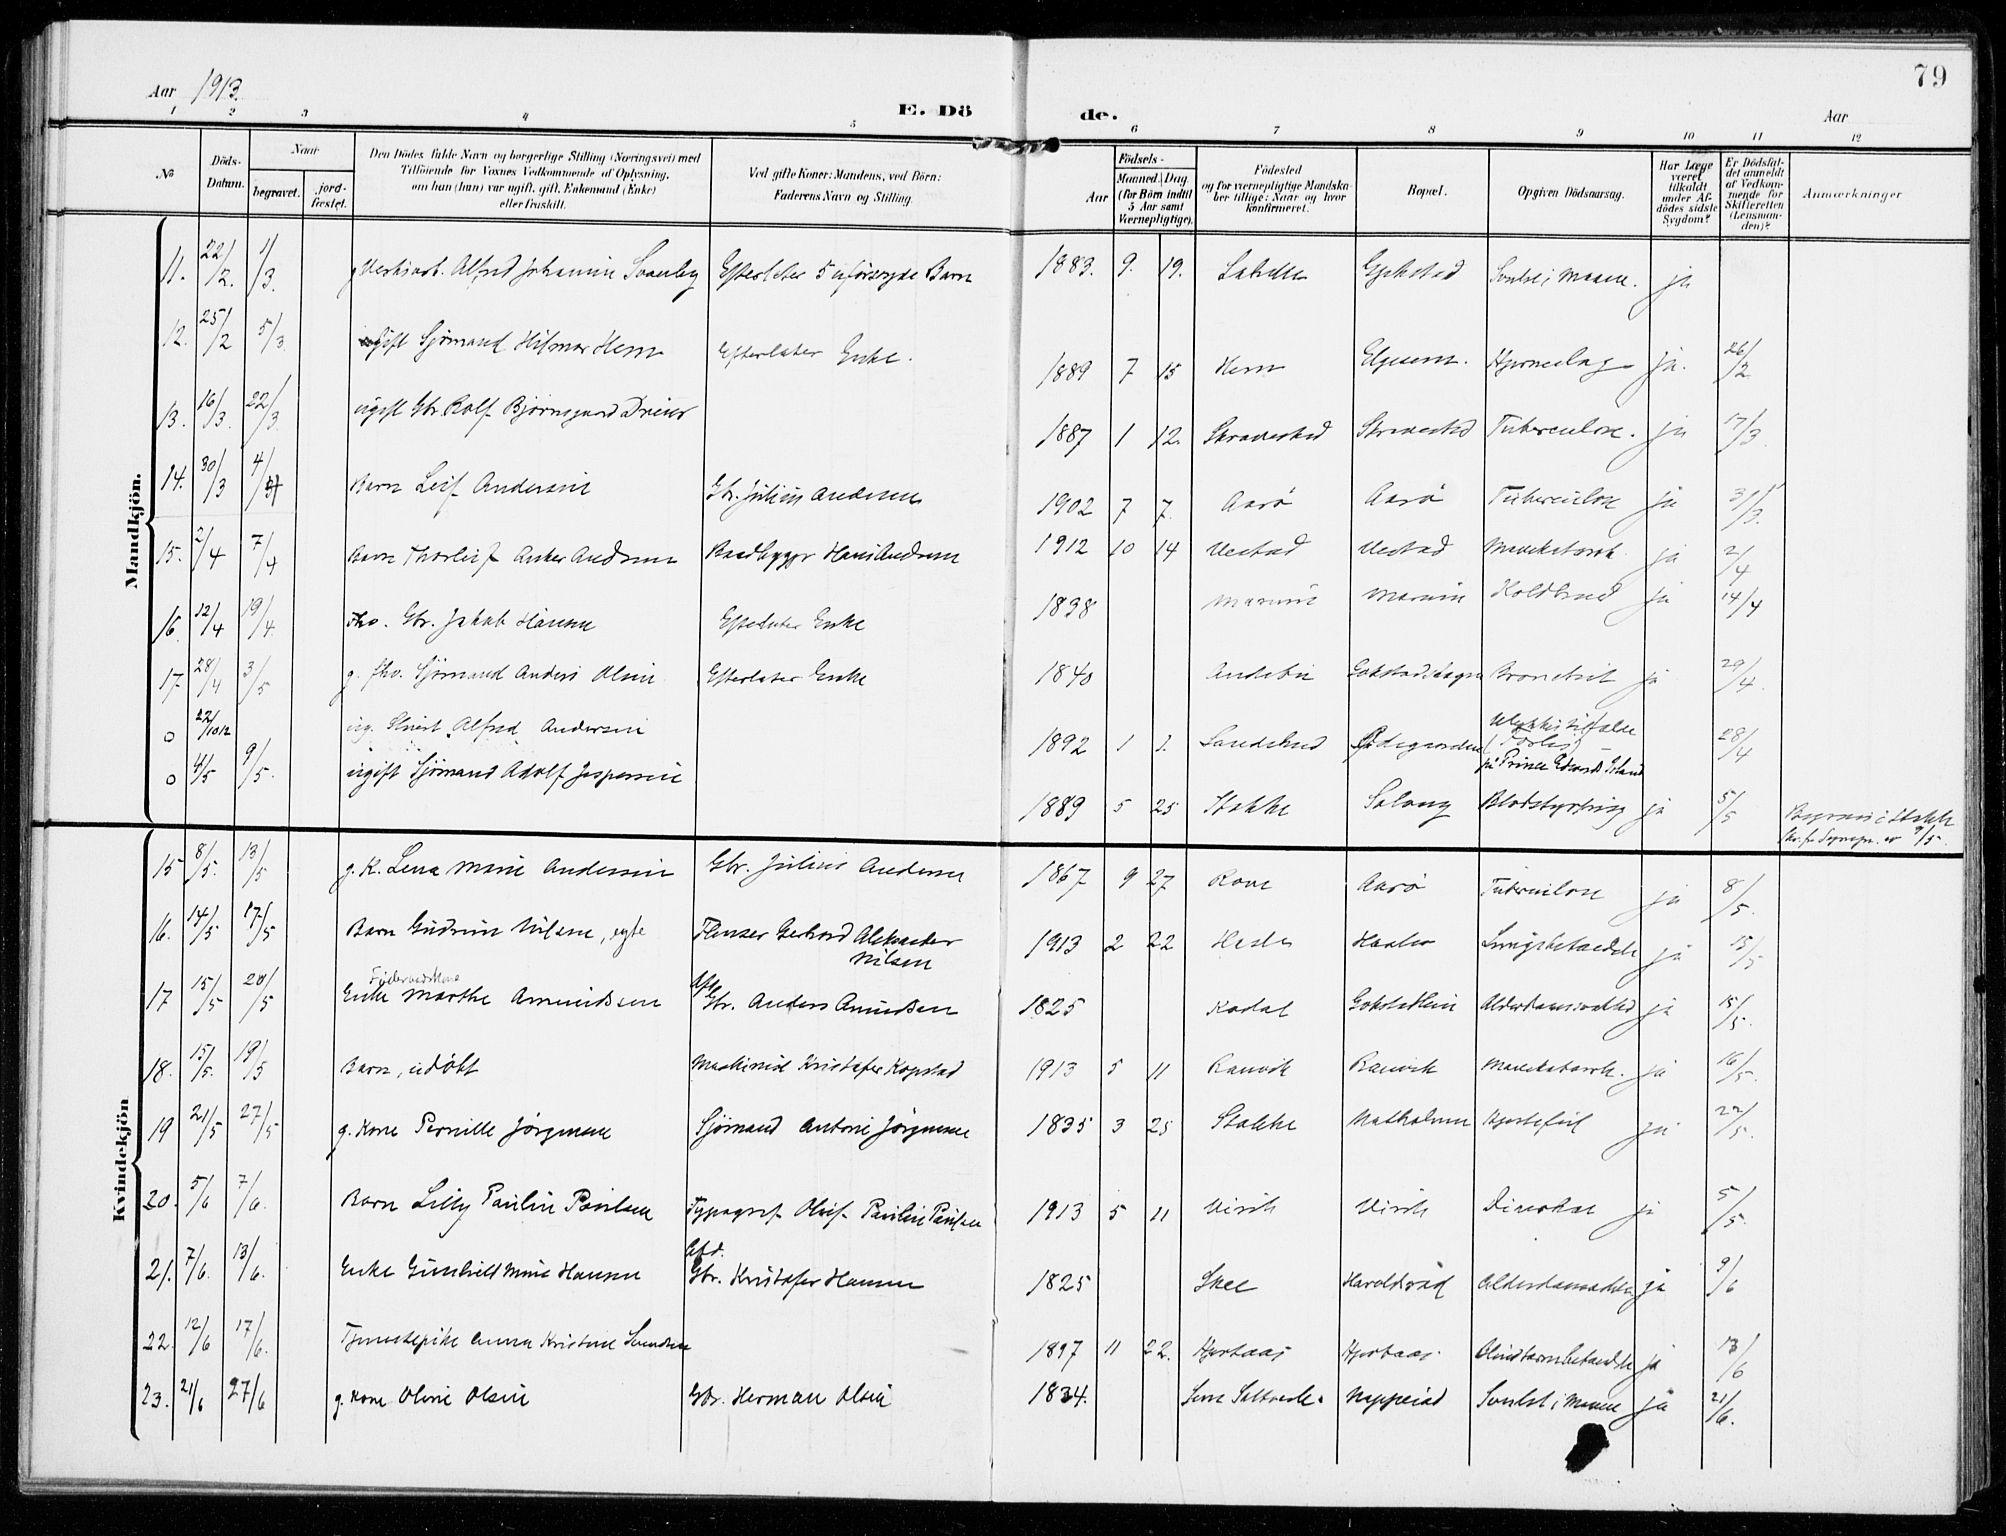 79
Aar 1913.
E. Dö de.
Aar
1 2 3 4 5 6 7 8 9 10 11 12
No
Döds-Datum.
Naar
begravet.
jord-fæstet.
Den Dödes fulde Navn og borgerlige Stilling (Næringsvei) med Tilföiende for Voxnes Vedkommende af Oplysning, om han (hun) var ugift, gift, Enkemand (Enke) eller fraskilt.
Ved gifte Koner: Mandens, ved Börn: Faderens Navn og Stilling.
Födsels-
Aar
Maaned. Dag.
(for Börn indtil 5 Aar samt Værnepligtige).
Födested og for værnepligtige Mandskaber tillige: Naar og hvor konfirmeret.
Bopæl.
Opgiven Dödsaarsag.
Har Læge været tilkaldt under Afdödes sidste Sygdom?
Er Dödsfaldet anmeldt af Vedkommende for Skifteretten (Lensmanden)?
Anmærkninger
Mandkjön.
11. 22/2. 1/3. Alfred Johannes Svenby Efterlater 5 uforsørgede Barn 1883. 9. 19. Svulst i Maven. ja
12. 25/2 5/3. gift Sjømand Hilmar Hem Efterlater Enke. 1889 7 15 Hem ja. 26/2
13. 16/3. 22/3. ugift Gbr. Rolf 1887 1 12. Tuberculose. ja 17/3.
14. 30/3 4/4 Barn Leif Andersen Gbr. Julius Andersen 1902 7 7. Aarø Aarø Tuberculose ja 31/3.
15. 2/4 7/4 Barn Thorleif Anker Andersen Baadbygger Hans Andersen 1912 10 14 Vestad Vestad Mavekatarrh. ja 2/4
16. 12/4 19/4. fhv. Gbr. Jakob Hansen Efterlater Enke 1838 Marum Marum Koldbrand ja 14/4
17. 28/4 3/5 g. fhv. Sjømand Anders Olsen Efterlater Enke 1840 Andebu Bronchit ja 29/4.
0 22/10 12 ug. Alfred Andersen 1892 1 1. Sandeherred Ødegaarden Ulykkestilfælde
på Prince Edwards Island 28/4
0 4/5 9/5. ugift Sjømand Adolf Jespersen 1889 5 25 Stokke Solvang Blodstyrtning ja 5/5 Begraves i Stokke
9/5.
Kvindekjön
15 8/5. 13/5 g. K. Lena Marie Andersen Gbr. Julius Andersen 1867 9 27 Aarø Tuberculose ja 8/5.
16. 14/5 17/5 Barn Gudrun Nilsen, egte Flenser Gerhard Aleksander
Nilsen 1913 2 22 Lungebetændelse ja 15/5
17 15/5 20/5 Føderaadskone
Enke Marthe Amundsen Afd.
Gbr. Anders Amundsen 1825 Kodal Alderdomssvakhed ja 15/5.
18. 15/5. 19/5 Barn, udøbt Maskinist Kristofer Kopstad 1913 5 11 Ranvik Ranvik Mavekatarrh. ja 16/5.
19 21/5 27/5 g. Kone Pernille Jørgensen Sjømand Anton Jørgensen 1835 3 25 Stokke Hjertefeil ja 22/5.
20. 5/6 7/6. Barn Lilly Paulsen Typograf Olaf Paulsen 1913 5 11 Virik Virik ja 5/5.
21. 7/6. 13/6. Enke Gunhild Marie Hansen Afd.
Gbr. Kristofer Hansen 1825 Skee ja 9/6
22. 12/6 17/6. Tjenestepike Anna Kristine Svendsen 1897 11 22. Hjertaas Hjertaas. Blindtarmbetændelse ja 13/6
23. 21/6 27/6 g. Kone Oline Olsen Gbr. Herman Olsen 1834. Svulst i Maven ja 21/6.